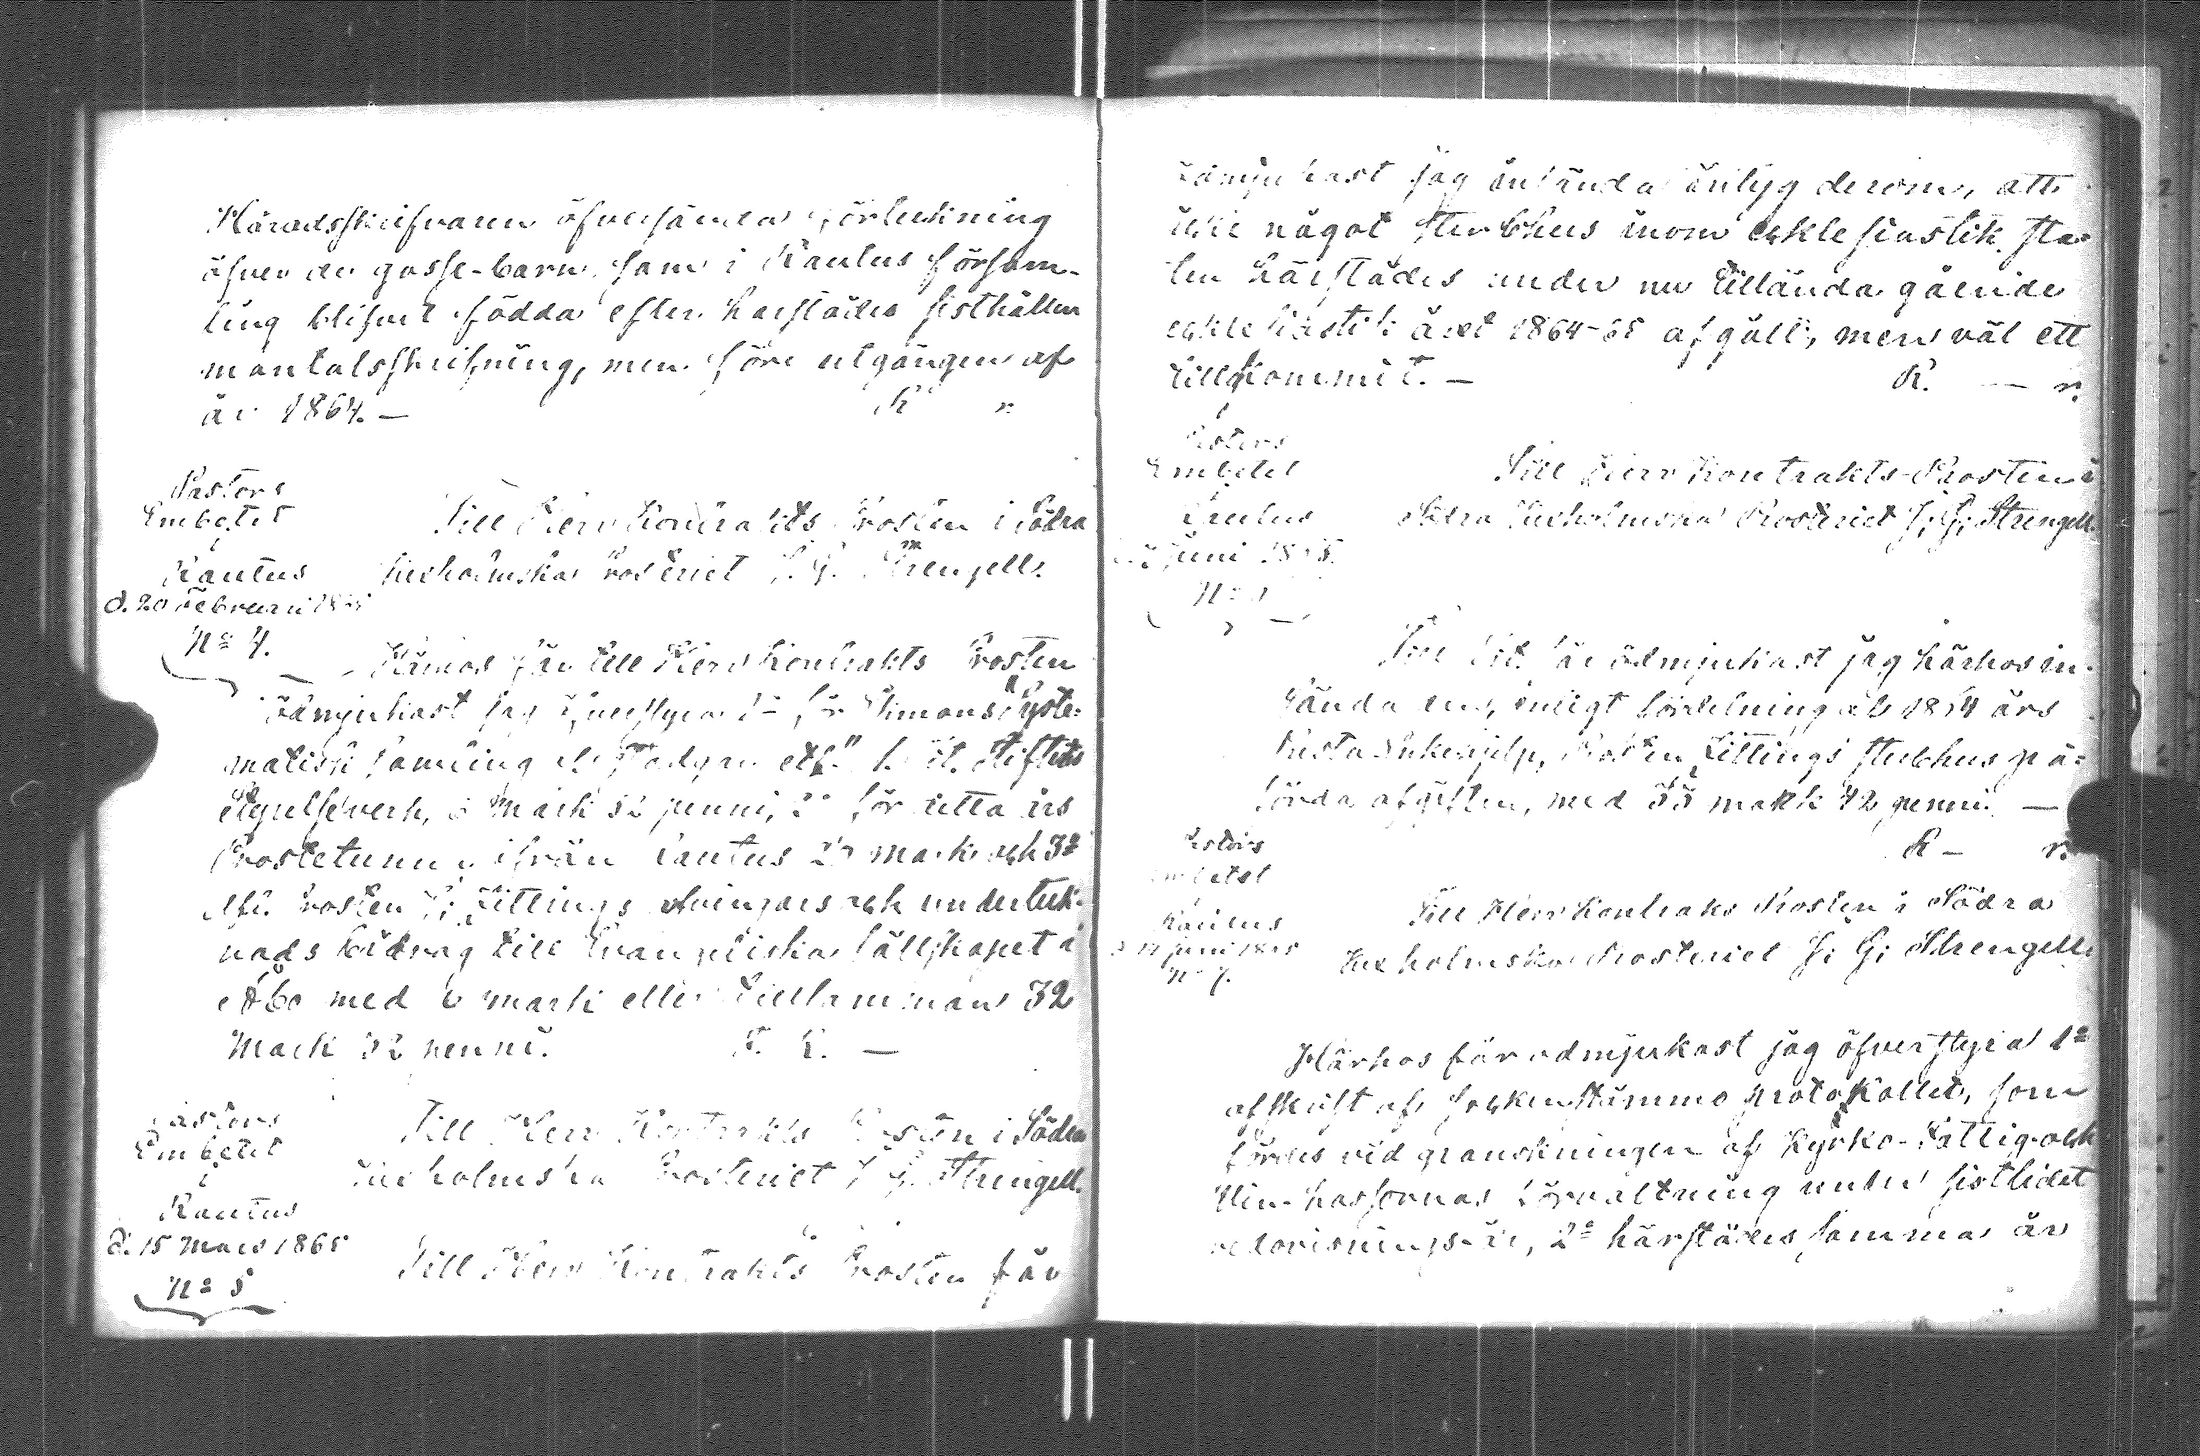 Häradsskrifvaren öfversända förteckning
öfver de gosse-barn, som i Rautus försam-
ling blifvit födda efter härstädes sisthållen
mantalsskrifning, men före utgången af
år 1864. — R r.
Pastors
Embetet
i
Rautus
d. 20 Februari 1865
No 4.
Till Herr Kontrakts Prosten i Södra
Kexholmska Prosteriet J. G. Strengell.
Härhos får till Herr Kontrakts Prosten
ödmjukast jag öfverstyra 1o för Simons "Syste-
matisk samling af Stadgar etc."
mark 32 penni, 2o för detta års
Prostetunna ifrån Rautus 20 mark och 3o
Prosten Zittings och undertek-
nads bidrag till Evangeliska sällskapet i
Åbo med 6 mark eller tillsammans 32
mark 32 penni. —
Pastors
Embetet
i
Rautus
d. 15 Mars 1865
No 5
Till Herr Kontrakts Prosten i Södra
Kexholmska Prosteriet J. G. Strengell.
Till Herr Kontrakts Prosten får
ödmjukast jag insända intyg derom, att
icke något sterbhus inom ecklesiastik sta-
ten härstädes under nu tilländagående
ecklesiastik året 1864-65 afgått, men väl ett
tillkommit. — R. — r.
Pastors
Embetet
i
Rautus
Juni 1865.
No
Till Herr Kontrakts-Prosten i
Södra Kexholmska Prosteriet J. G. Strengell.
Till får ödmjukast jag härhos in-
sända den, enligt fördelning af 1864 års
Prosten Zittings sterbhus på-
förda afgiften, med 55 mark 42 penni. —
R — r.
Pastors
Embetet
i
Rautus
Juni 1865
No 7.
Till Herr Kontrakts Prosten i Södra
Kexholmska Prosteriet J. G. Strengell.
Härhos får ödmjukast jag öfverstyra 1o
afskrift af sockenstämmo protokollet, som
fördes vid granskningen af Kyrko- Fattig- och
kassornas förvaltning under sistlidet
redovisnings-år, 2o härstädes samma år